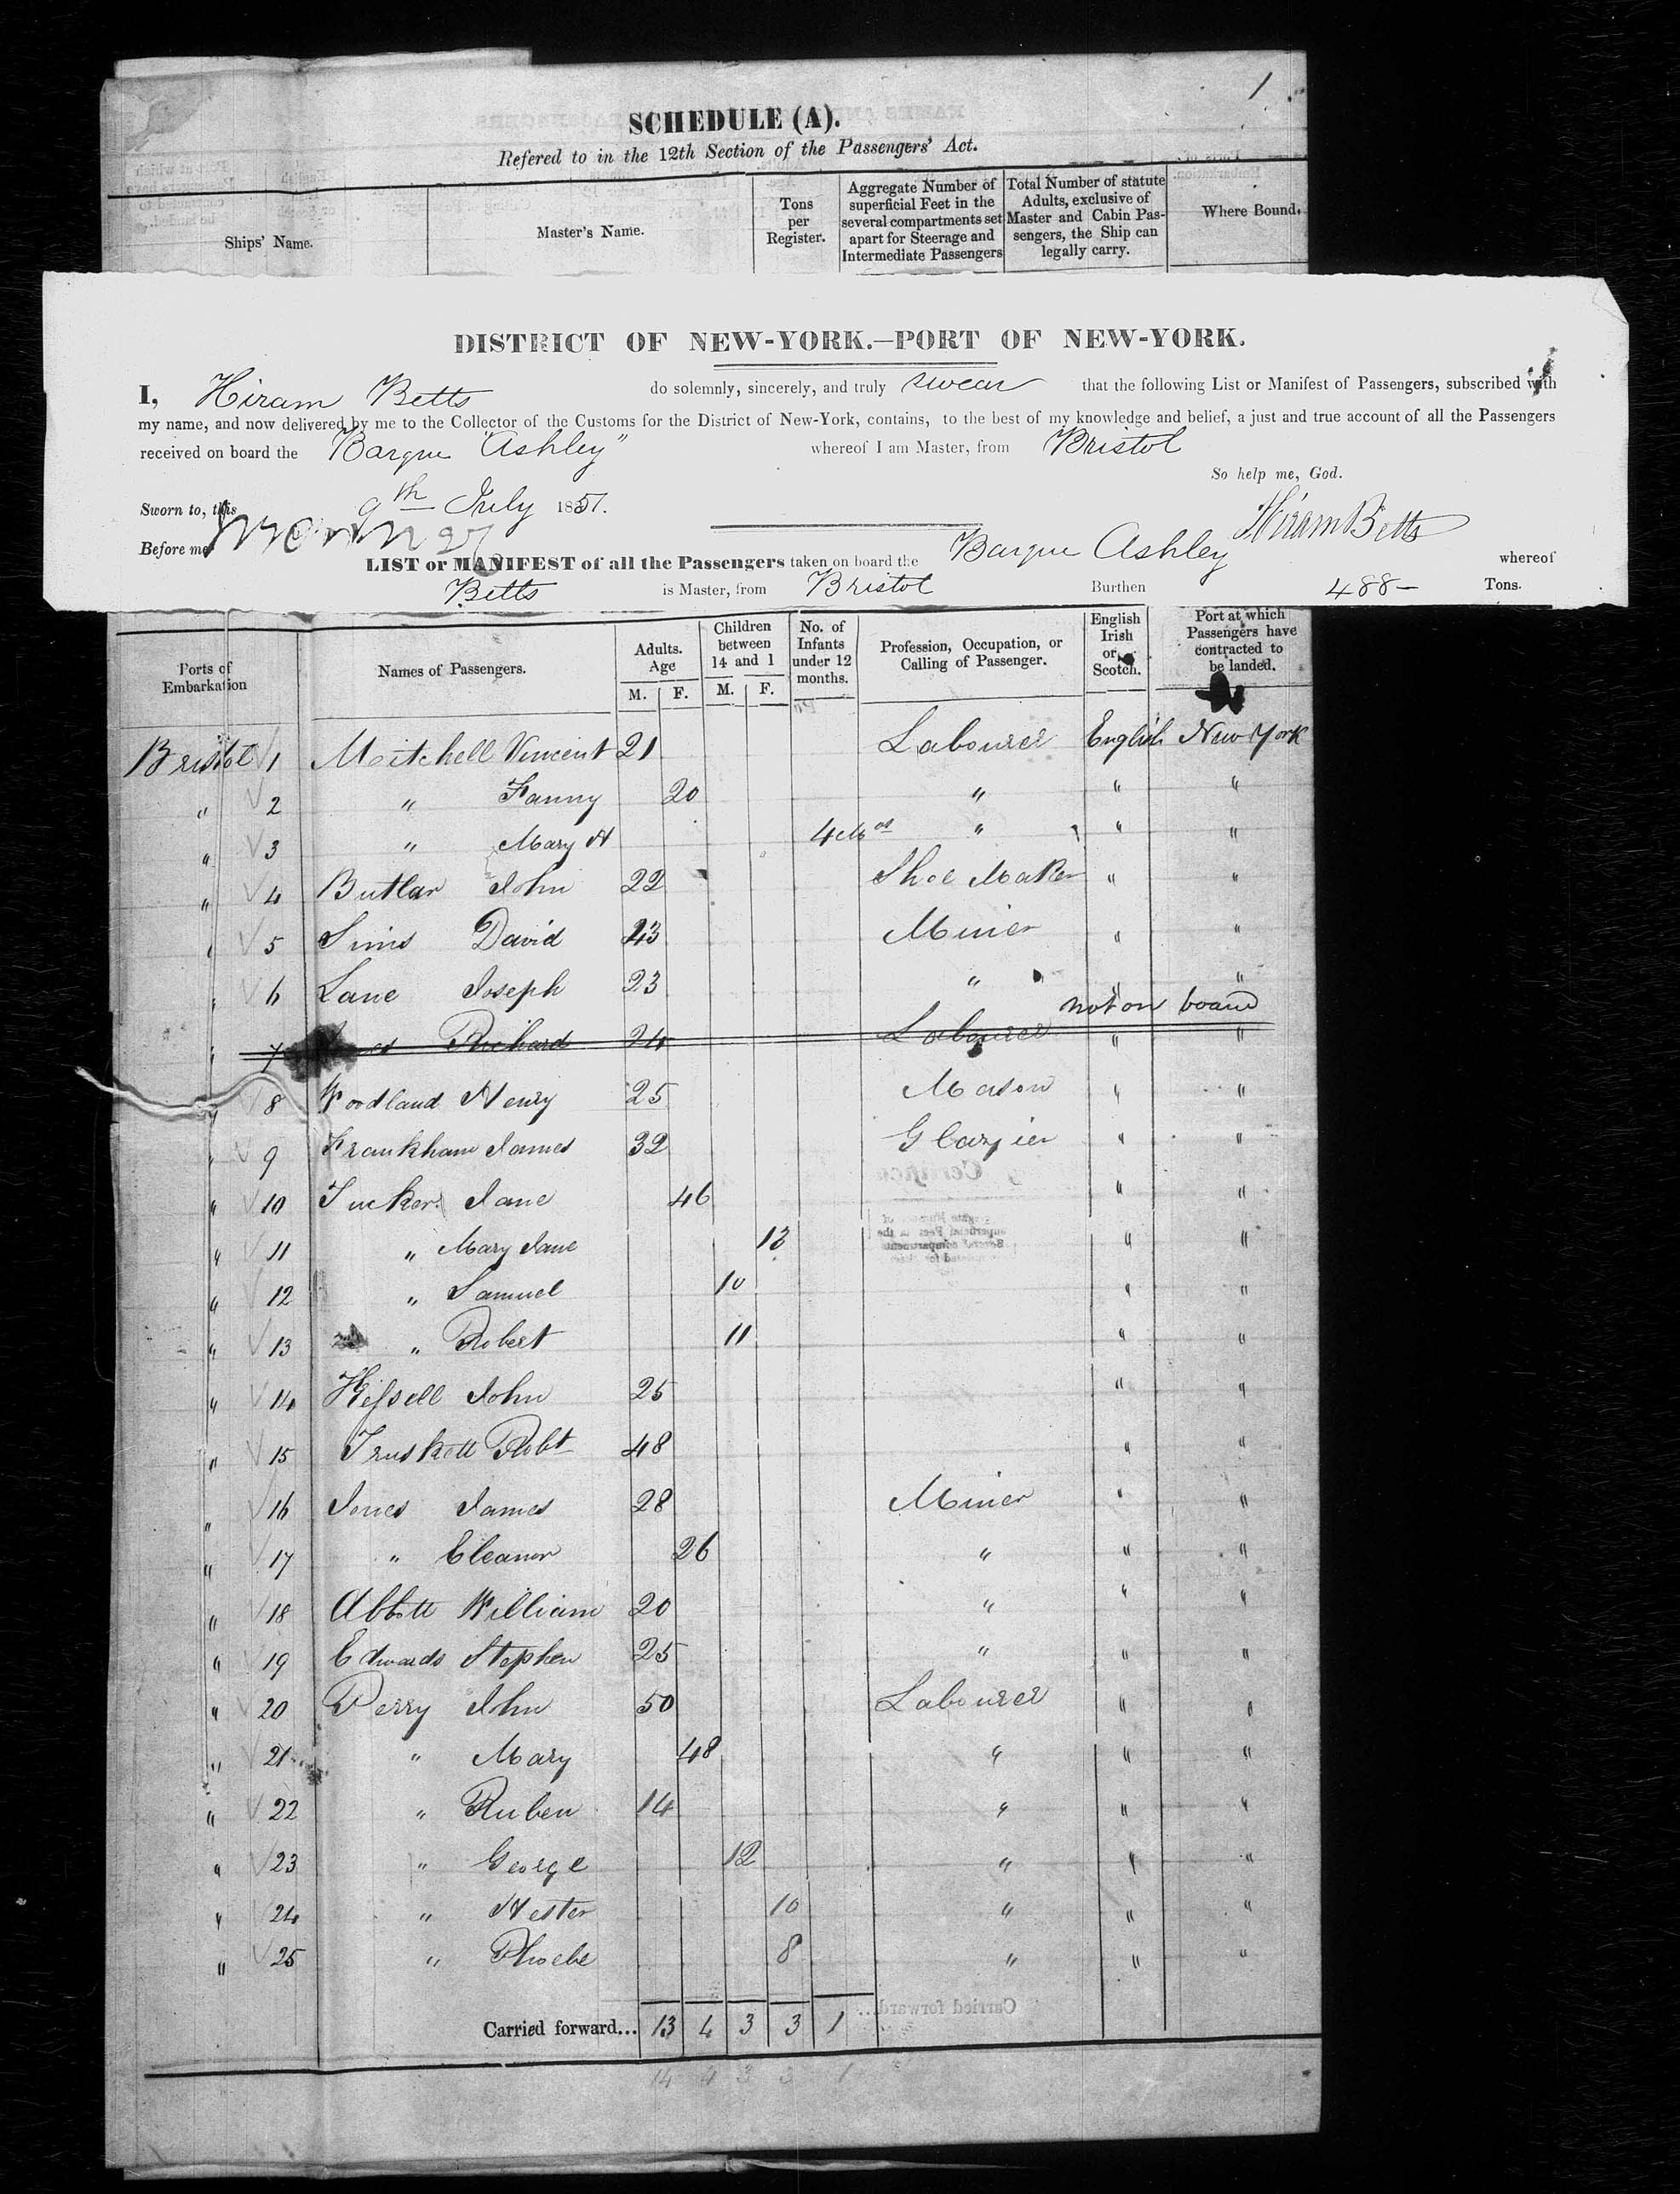 1
SCHEDULE (A).
Refered to in the 12th Section of the Passengers' Act.
Ships' Name.
Master's Name.
Tons per Register.
Aggregate Number of superficial Feet in the several compartments set apart for Steerage and Intermediate Passengers
Total Number of statute Adults, exclusive of Master and Cabin Passengers, the Ship can legally carry.
Where Bound.
DISTRICT OF NEW-YORK.—PORT OF NEW-YORK.
I, Hiram Betts do solemnly, sincerely, and truly swear that the following List or Manifest of Passengers, subscribed with
my name, and now delivered by me to the Collector of the Customs for the District of New-York, contains, to the best of my knowledge and belief, a just and true account of all the Passengers
received on board the Barque "Ashley" whereof I am Master, from Bristol
So help me, God.
Sworn to, this 9th July 1851.
Hiram Betts
Before me
LIST or MANIFEST of all the Passengers taken on board the Barque Ashley whereof
Betts is Master, from Bristol Burthen 488 – Tons.
Ports of Embarkation
Names of Passengers.
Adults. Age M. F.
Children between 14 and 1 M. F.
No. of Infants under 12 months.
Profession, Occupation, or Calling of Passenger.
English Irish or Scotch.
Port at which Passengers have contracted to be landed.
Bristol 1 Mitchell Vincent 21 Labourer English New York
" 2 " Fanny 20 " " "
" 3 " Mary A 4 Mos " " "
" 4 Butlar John 22 Shoe Maker " "
" 5 Sims David 43 Miner " "
" 6 Lane Joseph 23 " " "
not on board
" 7 Richard 24 Labourer " "
" 8 Woodland Henry 25 Mason " "
" 9 Frankham James 32 Glazier " "
" 10 Tucker Jane 46 " "
" 11 " Mary Jane 13 " "
" 12 " Samuel 10 " "
" 13 " Robert 11 " "
" 14 Hessell John 25 " "
" 15 Truskett Robt 48 " "
" 16 Jones James 28 Miner " "
" 17 " Eleanor 26 " " "
" 18 Abbott William 20 " " "
" 19 Edwards Stephen 25 " " "
" 20 Perry John 50 Labourer " "
" 21 " Mary 48 " " "
" 22 " Ruben 14 " " "
" 23 " George 12 " " "
" 24 " Hester 10 " " "
" 25 " Phoebe 8 " " "
Carried forward... 13 4 3 3 1
14 4 3 3 1